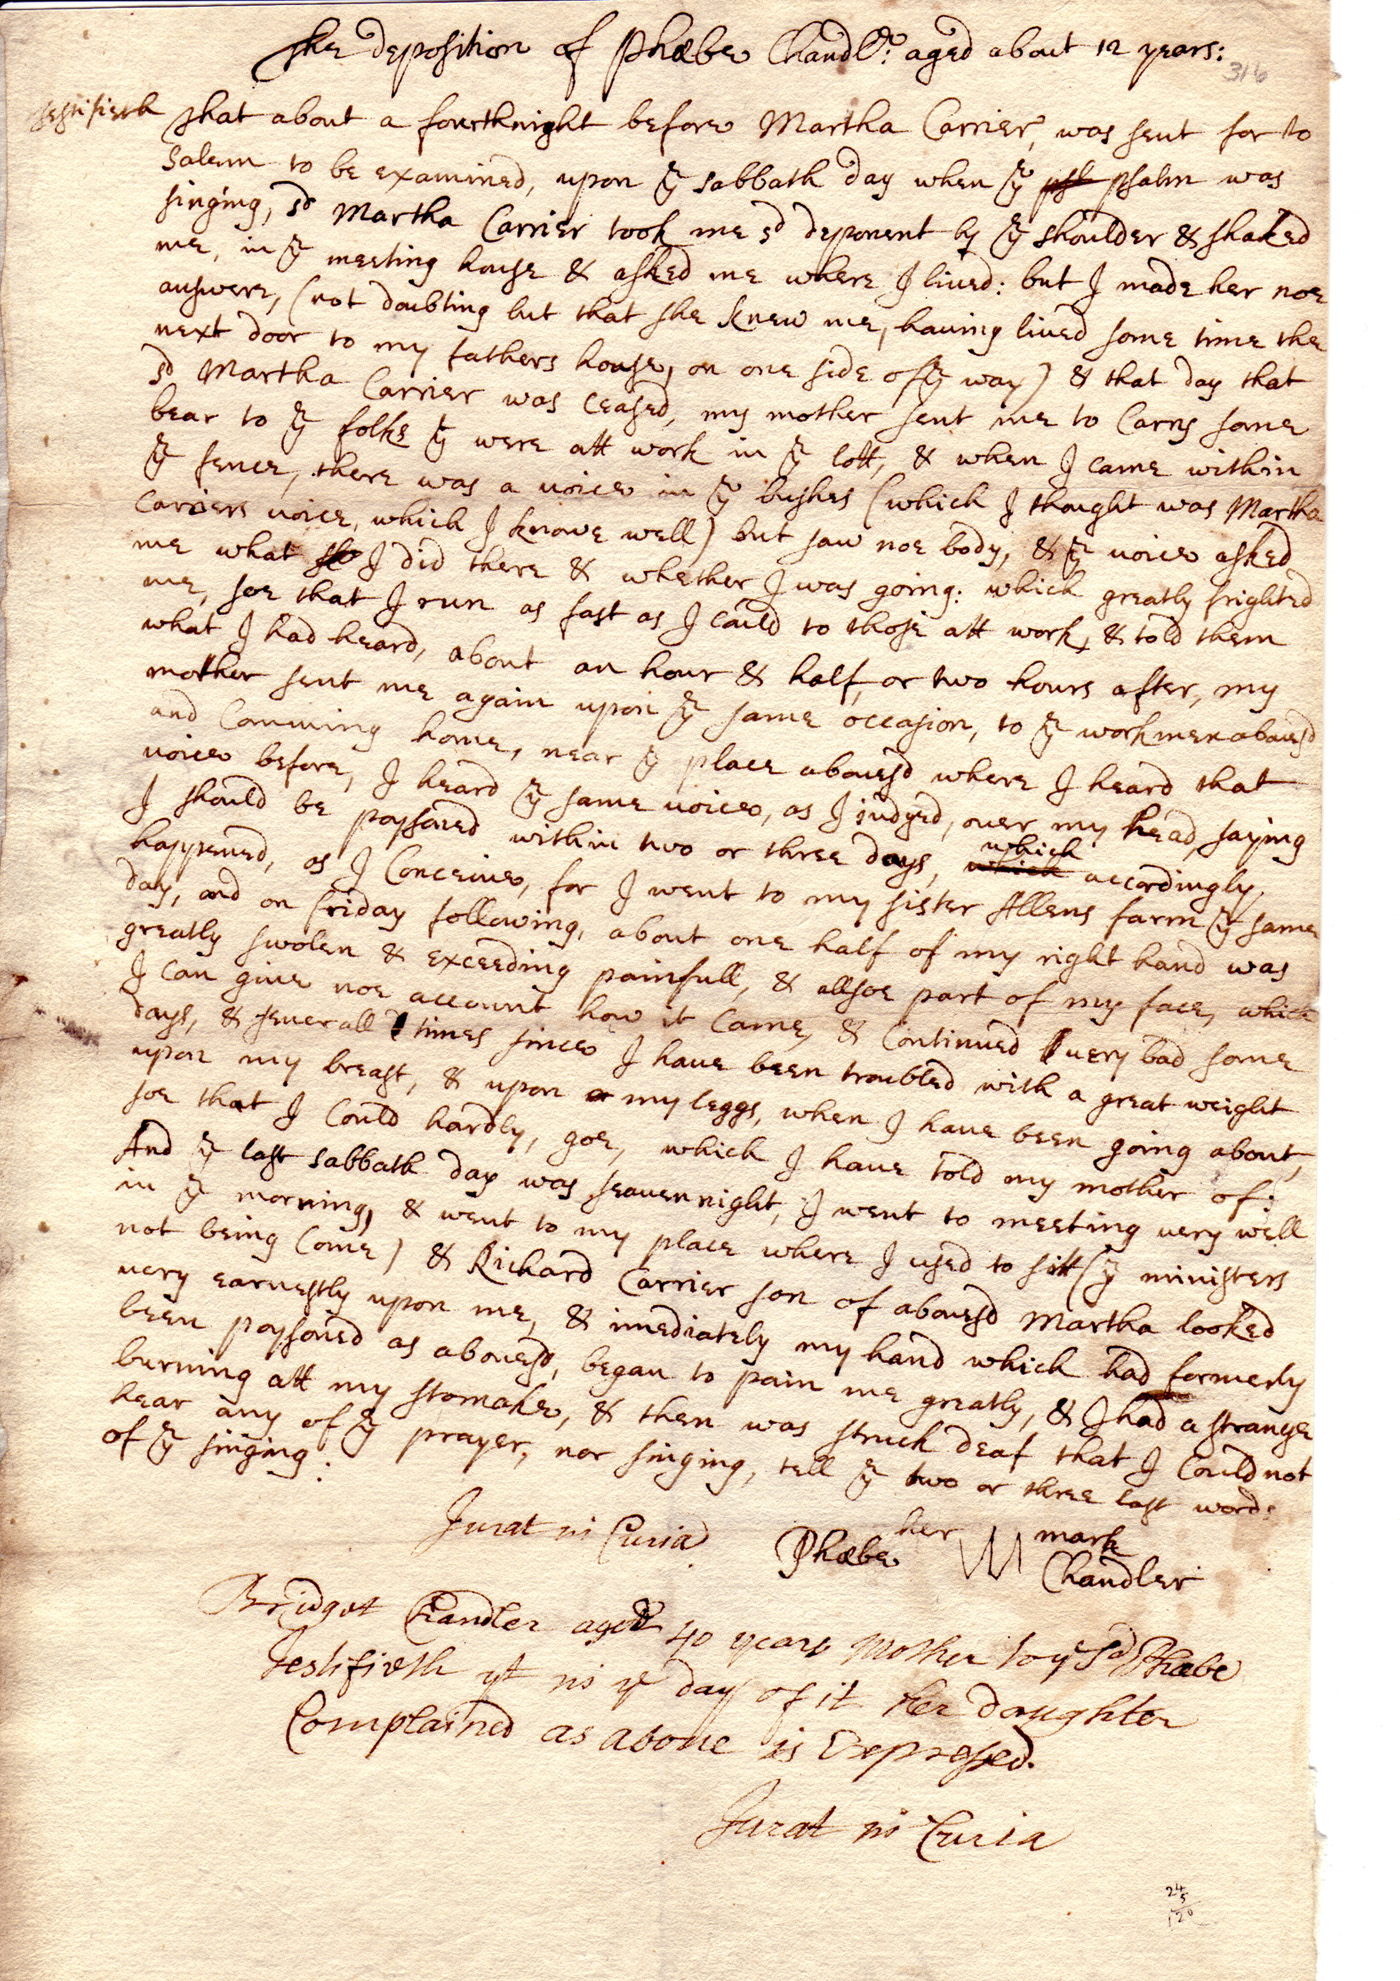 The deposition of Phœbe Chandlr: aged about 12 years:
316
Testifieth that about a fourthnight before Martha Carrier, was sent for to
Salem to be examined, upon ye Sabbath day when ye psl psalm was
singing, sd Martha Carrier took me sd deponent by ye shoulder & shaked
me, in ye meeting house & asked me where I lived: but I made her noe
answere, (not doubting but that she knew me, having lived some time the
next door to my fathers house, on one side of ye way) & that day that
sd Martha Carrier was ceased, my mother sent me to Carry some
bear to ye folks yt were att work in ye lott, & when I came within
ye fence, there was a voice in ye bushes (which I thought was Martha
Carriers voice, which I knowe well) but saw noe body, & ye voice asked
me what she I did there & whether I was going: which greatly frighted
me, soe that I run as fast as I could to those att work, & told them
what I had heard, about an hour & half, or two hours after, my
mother sent me again upon ye same occasion, to ye workmen abovesd
and Comming home, near ye place abovesd where I heard that
voice before, I heard ye same voice, as I judged, over my head, saying
I should be poysoned within two or three days, which which accordingly
happened, as I Conceive, for I went to my sister Allens farm ye same
day, and on friday following, about one half of my right hand was
greatly swolen & exceeding painfull, & allsoe part of my face, which
I can give noe account how it Came, & Continued very bad some
days, & severall times since I have been troubled with a great weight
upon my breast, & upon my leggs, when I have been going about,
soe that I Could hardly, goe, which I have told my mother of:
And ye last Sabbath day was seavennight, I went to meeting very well
in ye morning, & went to my place where I used to sitt (ye ministers
not being Come) & Richard Carrier son of abovesd Martha looked
very earnestly upon me, & imediately my hand which had formerly
been poysoned as abovesd, began to pain me greatly, & I had a strange
burning att my stomake, & then was struck deaf that I Could not
hear any of ye prayer, nor singing, till ye two or three last words
of ye singing:
Jurat in Curia
Phœbe her mark Chandler
Bridget Chandler aged 40 years Mother to ye sd Phœbe
Testifieth yt in ye day of it Her daughter
Complained as above is Expressed.
Jurat in Curia
24
5
120